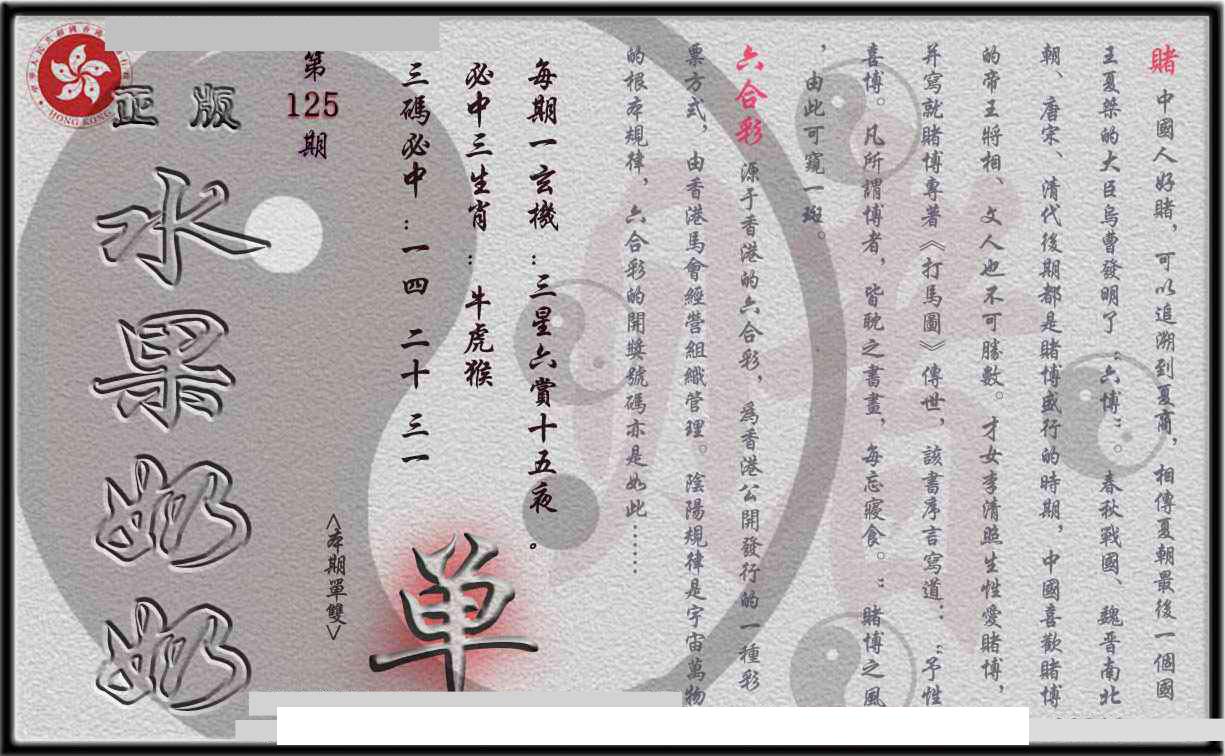 賭 中國人好賭，可以追溯到夏商，相傳夏朝最後一個國
王夏桀的大臣烏曹發明了“六博”。春秋戰國、魏晋南北
朝、唐宋、清代後期都是賭博盛行的時期，中國喜歡賭博
的帝王將相、文人也不可勝數。才女李清照生性愛賭博，
并寫就賭博專著《打馬圖》傳世，該書序言寫道：“予性
喜博。凡所謂博者，皆耽之書畫，每忘寢食。”賭博之風
，由此可窺一斑。
六合彩 源于香港的六合彩，爲香港公開發行的一種彩
票方式，由香港馬會經營組織管理。陰陽規律是宇宙萬物
的根本規律，六合彩的開獎號碼亦是如此……
每期一玄機：三星六賞十五夜。
必中三生肖：牛虎猴
三碼必中：一四 二十 三一
<本期單雙>
单
第
125
期
正版
水果奶奶
HONG KONG